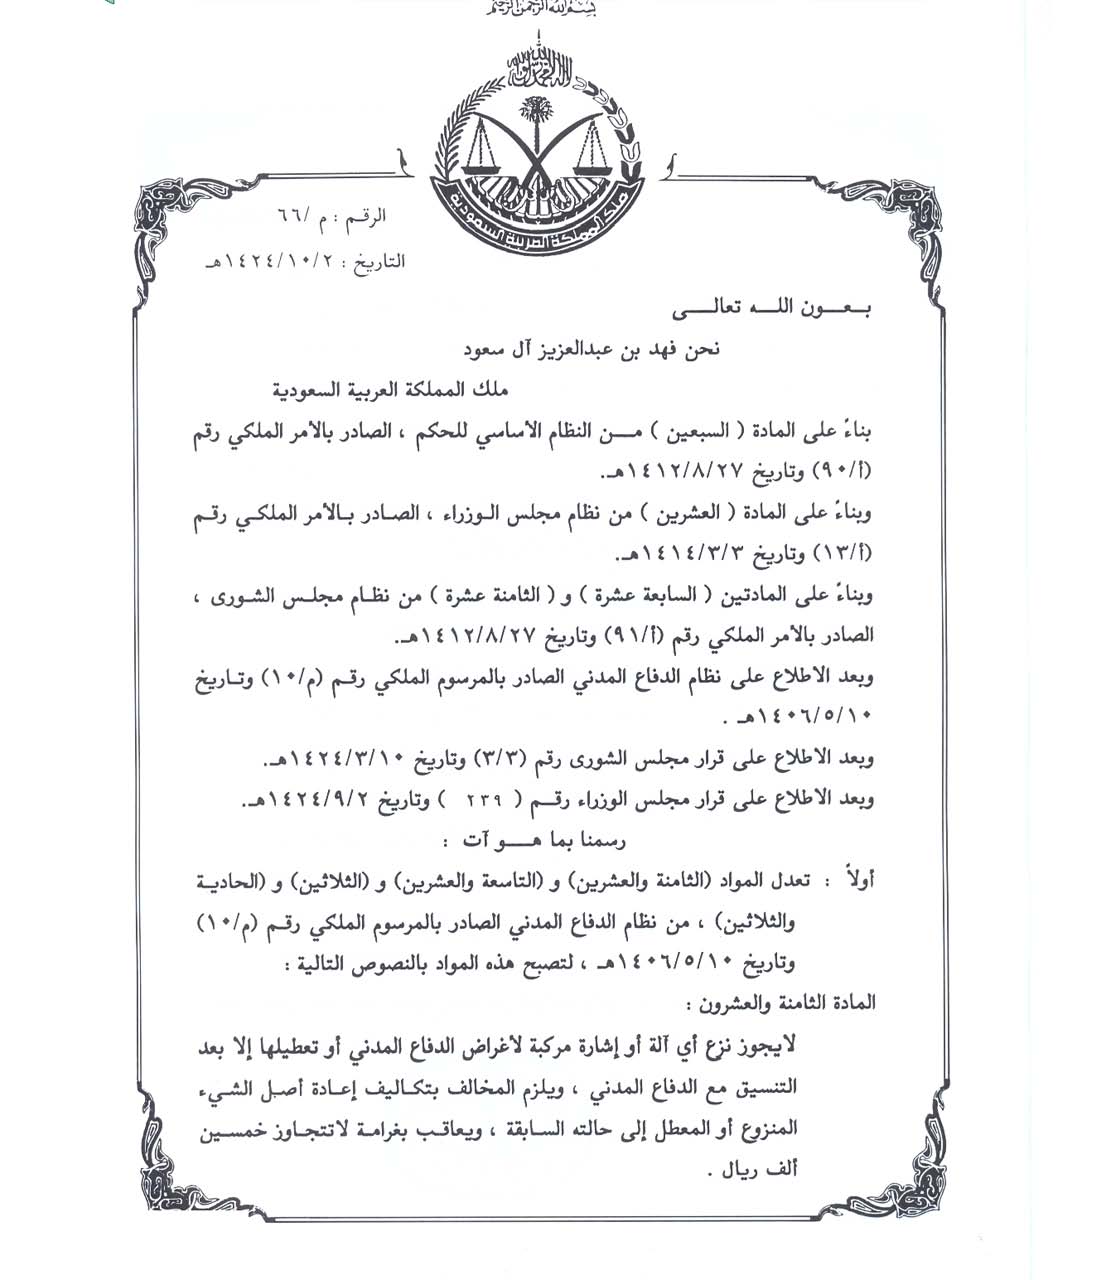 بسم الله الرحمن الرحيم
لا إله إلا الله محمد رسول الله
ملك المملكة العربية السعودية
الرقم : م /٦٦
التاريخ : ١٤٢٤/١٠/٢هـ
بعـــون اللـــه تعالـــى
نحن فهد بن عبدالعزيز آل سعود
ملك المملكة العربية السعودية
بناءً على المادة ( السبعين ) مـــن النظام الأساسي للحكم ، الصادر بالأمر الملكي رقم
(أ/٩٠) وتاريخ ١٤١٢/٨/٢٧هـ.
وبناءً على المادة ( العشرين ) من نظام مجلس الوزراء ، الصادر بالأمر الملكي رقم
(أ/١٣) وتاريخ ١٤١٤/٣/٣هـ.
وبناءً على المادتين ( السابعة عشرة ) و ( الثامنة عشرة ) من نظام مجلس الشورى ،
الصادر بالأمر الملكي رقم (أ/٩١) وتاريخ ١٤١٢/٨/٢٧هـ.
وبعد الاطلاع على نظام الدفاع المدني الصادر بالمرسوم الملكي رقم (م/١٠) وتاريخ
١٤٠٦/٥/١٠هـ .
وبعد الاطلاع على قرار مجلس الشورى رقم (٣/٣) وتاريخ ١٤٢٤/٣/١٠هـ.
وبعد الاطلاع على قرار مجلس الوزراء رقم ( ٢٣٩ ) وتاريخ ١٤٢٤/٩/٢هـ.
رسمنا بما هـــو آت :
أولاً : تعدل المواد (الثامنة والعشرين) و (التاسعة والعشرين) و (الثلاثين) و (الحادية
والثلاثين) ، من نظام الدفاع المدني الصادر بالمرسوم الملكي رقم (م/١٠)
وتاريخ ١٤٠٦/٥/١٠هـ ، لتصبح هذه المواد بالنصوص التالية :
المادة الثامنة والعشرون :
لايجوز نزع أي آلة أو إشارة مركبة لأغراض الدفاع المدني أو تعطيلها إلا بعد
التنسيق مع الدفاع المدني ، ويلزم المخالف بتكاليف إعادة أصل الشيء
المنزوع أو المعطل إلى حالته السابقة ، ويعاقب بغرامة لاتتجاوز خمسين
ألف ريال .